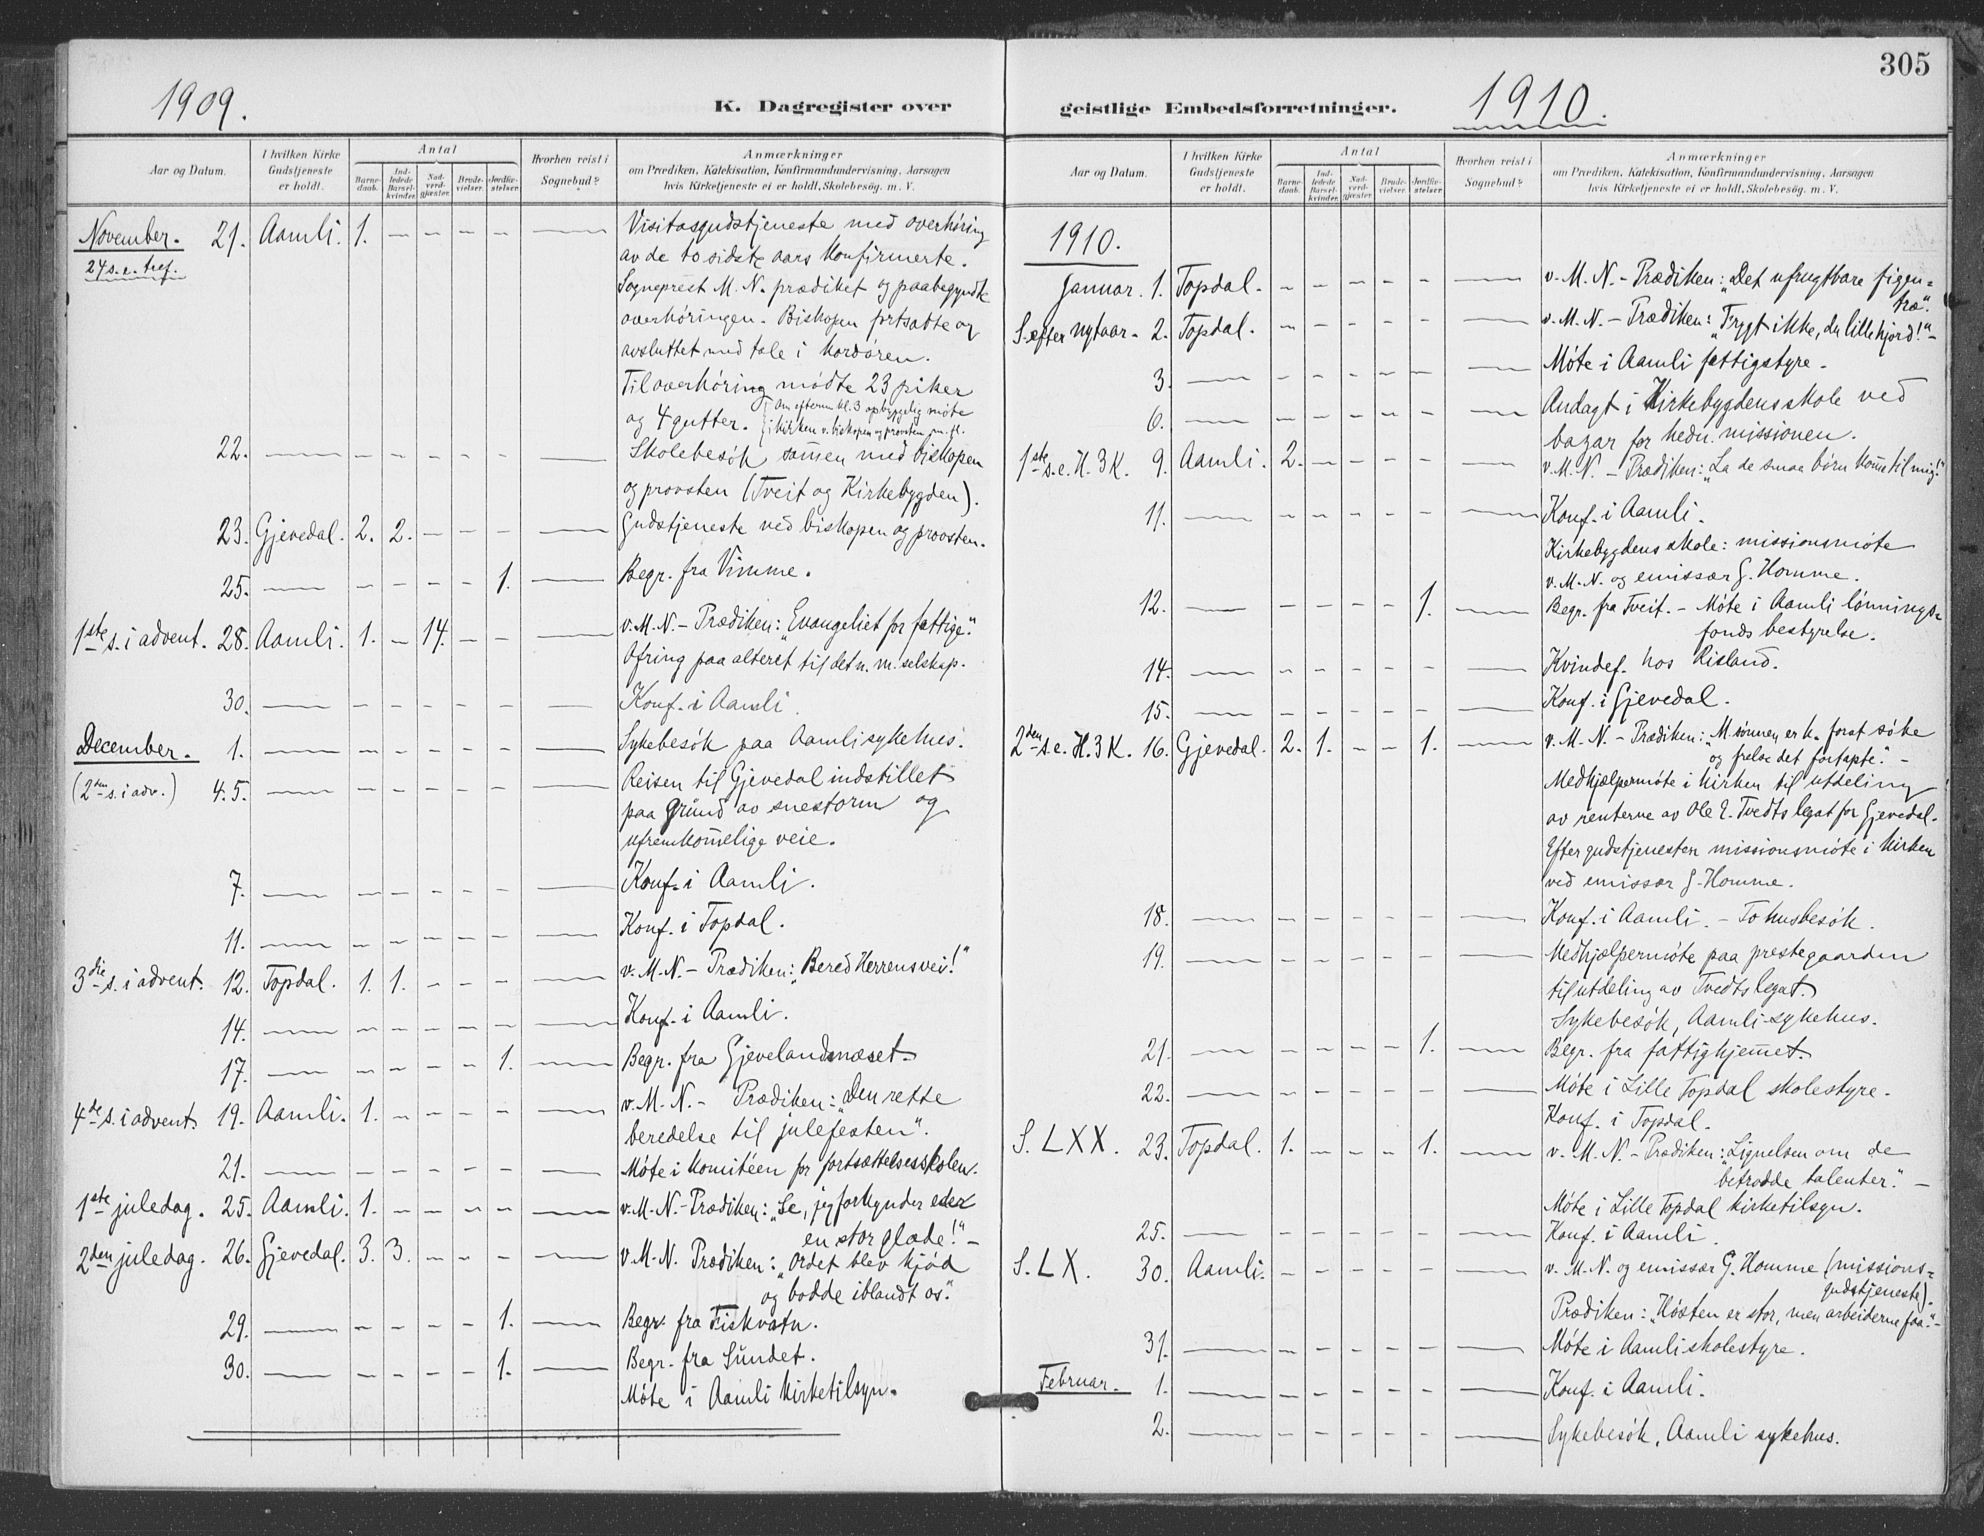 305
1909.
K. Dagregister over
geistlige Embedsforretninger.
1910.
Aar og Datum.
I hvilken Kirke Gudstjeneste er holdt.
Antal
Barnedaab.
Indledede Barselkvinder.
Nadverdgjæster.
Brudevielser.
Jordfæstelser.
Hvorhen reist i Sognebud?
Anmærkninger
om Prædiken, Katekisation, Konfirmandundervisning, Aarsagen
hvis Kirketjeneste ei er holdt, Skolebesøg. m. V.
November. 21. Aamli. 1. – – – – — Visitasgudstjeneste med overhøring
24 s. e. tref. av de to sidste aars konfirmerte.
Sogneprest M. N. prædiket og paabegyndte
overhøringen. Biskopen fortsatte og
avsluttet med tale i kordøren.
Til overhøring mødte 23 piker
og 4 gutter. Om efterm kl. 3 opbyggelig møte
i kirken v. biskopen og provsten m. fl.
22. — – – – – – — Skolebesøk sammen med biskopen
og provsten (Tveit og Kirkebygden).
23. Gjevedal. 2. 2. – – – — Gudstjeneste ved biskopen og provsten.
25. — – – – – 1. — Begr. fra Vimme.
1ste s. i advent. 28. Aamli. 1. – 14. – – — v. M. N. – Prædiken: „Evangeliet for fattige."
Ofring paa alteret til det n. m. selskap.
30. — – – – – – — Konf. i Aamli.
December. 1. — – – – – – — Sykebesøk paa Aamli sykehus.
(2den s. i adv.) 4. 5. — – – – – – — Reisen til Gjevedal indstillet
paa grund av snestorm og
ufremkommelige veie.
7. — – – – – – — Konf. i Aamli.
11. — – – – – – — Konf. i Topdal.
3die s. i advent. 12. Topdal. 1. 1. – – – — v. M. N. – Prædiken: „Bered Herrens vei!"
14. — – – – – – — Konf. i Aamli.
17. — – – – – 1. — Begr. fra Gjevelandsnæset.
4de s. i advent. 19. Aamli. 1. – – – – — v. M. N. – Prædiken: „Den rette
beredelse til julefesten".
21. — – – – – – — Møte i komitéen for fortsættelsesskolen.
1ste juledag. 25. Aamli. 1. – – – – — v. M. N. – Prædiken: „Se, jeg forkynder eder
en stor glæde!" –
2den juledag. 26. Gjevedal. 3. 3. – – – — v. M. N. Prædiken: „Ordet blev kjød
og bodde iblandt os."
29. — – – – – 1. — Begr. fra Fiskvatn.
30. — – – – – 1. — Begr. fra Sundet.
Møte i Aamli kirketilsyn.
Aar og Datum.
I hvilken Kirke Gudstjeneste er holdt.
Antal
Barnedaab.
Indledede Barselkvinder.
Nadverdgjæster.
Brudevielser.
Jordfæstelser.
Hvorhen reist i Sognebud?
Anmærkninger
om Prædiken, Katekisation, Konfirmandundervisning, Aarsagen
hvis Kirketjeneste ei er holdt, Skolebesøg. m. V.
1910.
Januar. 1. Topdal. – – – – – — v. M. N. – Prædiken: „Det ufrugtbare figen-
træ".
S. efter nytaar. 2. Topdal. – – – – – — v. M. N. – Prædiken: „Frygt ikke, du lille hjord!" –
3. — – – – – – — Møte i Aamli fattigstyre.
6. — – – – – – — Andagt i Kirkebygdens skole ved
bazar for hedn. missionen.
1ste s. e. H. 3 K. 9. Aamli. 2. – – – – — v. M. N. – Prædiken: „La de smaa børn komme til mig!"
11. — – – – – – — Konf. i Aamli.
Kirkebygdens skole: missionsmøte
v. M. N. og emissær G. Homme.
12. — – – – – 1. — Begr. fra Tveit. – Møte i Aamli lønnings-
fonds bestyrelse.
14. — – – – – – — Kvindef. hos Risland.
15. — – – – – – — Konf. i Gjevedal.
2den s. e. H. 3 K. 16. Gjevedal. 2. 1. – – 1. — v. M. N. – Prædiken: „M. sønnen er k. forat søke
og frelse det fortapte." –
Medhjælpermøte i kirken til utdeling
av renterne av Ole E. Tvedts legat for Gjevedal.
Efter gudstjenesten missionsmøte i kirken
ved emissær G. Homme.
18. — – – – – – — Konf. i Aamli. – To husbesøk.
19. — – – – – – — Medhjælpermøte paa prestegaarden
til utdeling av Tvedts legat.
Sykebesøk, Aamli-sykehus.
21. — – – – – 1. — Begr. fra fattighjemmet.
22. — – – – – – — Møte i Lille Topdal skolestyre.
Konf. i Topdal.
S. LXX. 23. Topdal. 1. – – – 1. — v. M. N. – Prædiken: „Lignelsen om de
betrodde talenter." –
Møte i Lille Topdal kirketilsyn.
25. — – – – – – — Konf. i Aamli.
S. LX. 30. Aamli. – – – – – — v. M. N. og emissær G. Homme (missions-
gudstjeneste).
Prædiken: „Høsten er stor, men arbeiderne faa." –
31. — – – – – – — Møte i Aamli skolestyre.
Februar. 1. — – – – – – — Konf. i Aamli.
2. — – – – – – — Sykebesøk, Aamli sykehus.